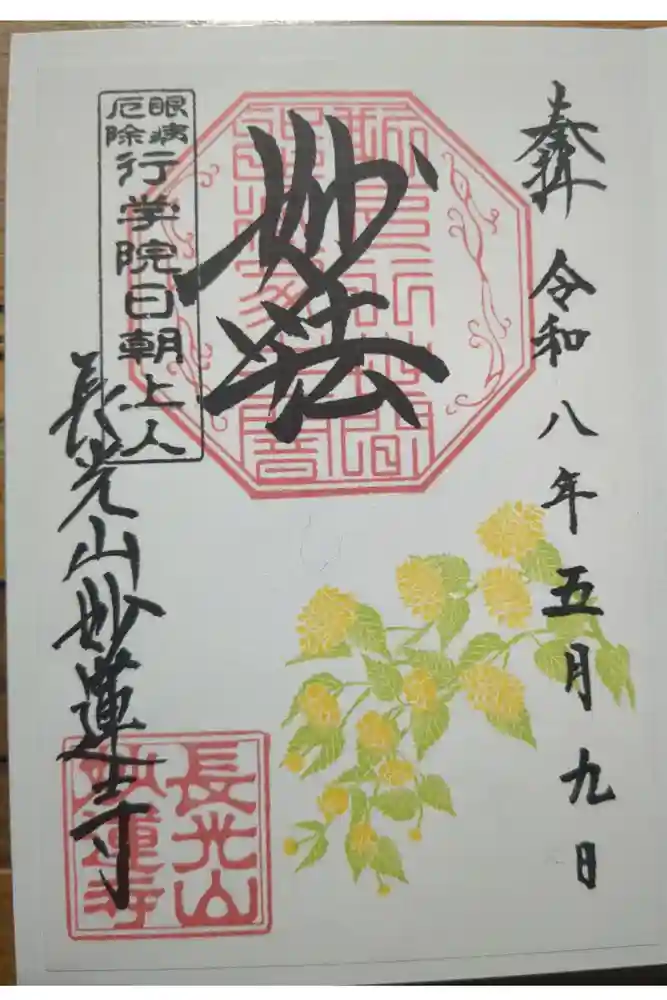 奉拝
令和八年五月九日
妙法
眼病
厄除
行学院日朝上人
長光山妙蓮寺
長光山
妙蓮寺